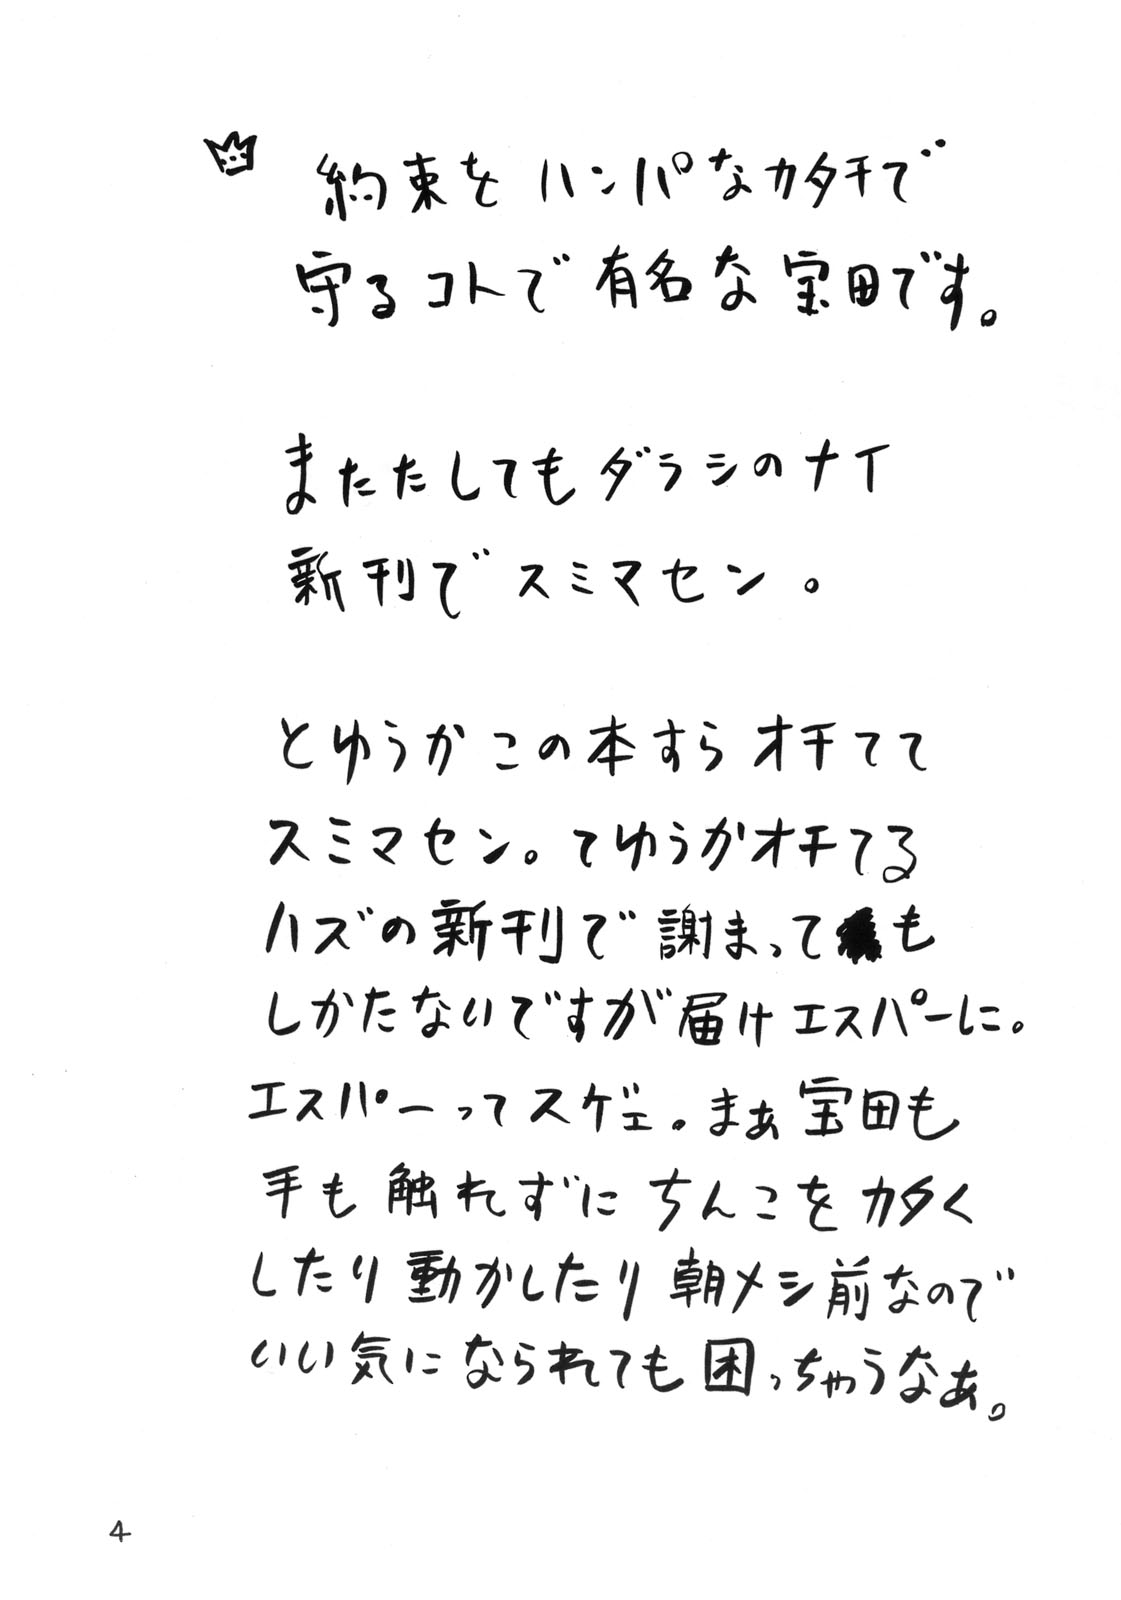 約束をハンパなカタチで
守るコトで有名な宝田です。
またたしてもダラシのナイ
新刊でスミマセン。
とゆうかこの本すらオチてて
スミマセン。てゆうかオチてる
ハズの新刊で謝まっても
しかたないですが届けエスパーに。
エスパーってスゲェ。まぁ宝田も
手も触れずにちんこをカタく
したり動かしたり朝メシ前なので
いい気になられても困っちゃうなあ。
4